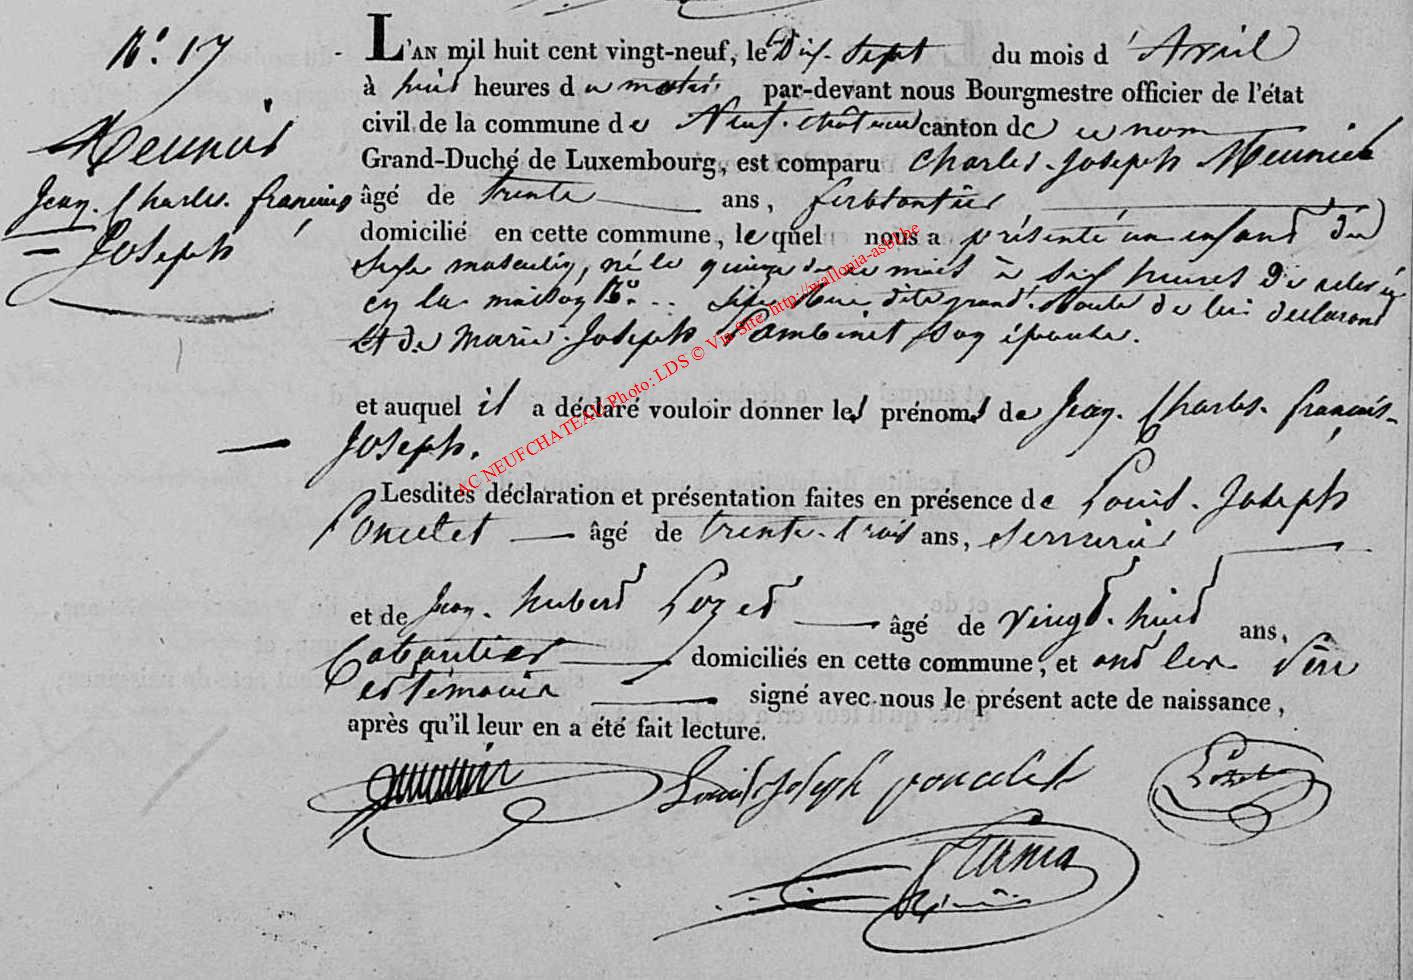 N.° 17
Meunier
Jean. Charles. françois
Joseph
L'AN mil huit cent vingt-neuf, le Dix-Sept du mois d'Avril
à huit heures du matin par-devant nous Bourgmestre officier de l'état
civil de la commune de Neuf-château canton de ce nom
Grand-Duché de Luxembourg, est comparu Charles-Joseph Meunier
âgé de trente ans, ferblantier
domicilié en cette commune, lequel nous a présenté un enfant du
Sexe masculin, né le quinze de ce mois à six heures de relevée
en la maison N.° Sise Rue dite grand'Route de lui déclarant
et de Marie-Joseph Lambinet son épouse.
et auquel il a déclaré vouloir donner les prénoms de Jean. Charles. françois-
Joseph.
Lesdites déclaration et présentation faites en présence de Louis-Joseph
Poncelet âgé de trente-trois ans, serrurier
et de Jean-hubert Lozet âgé de vingt-huit ans,
Cabaretier domiciliés en cette commune, et ont les Père
et témoins signé avec nous le présent acte de naissance,
après qu'il leur en a été fait lecture.
Louis Joseph poncelet
Lozet
AC NEUFCHATEAU, Photo: LDS © Via Site: http://wallonia-asbl.be